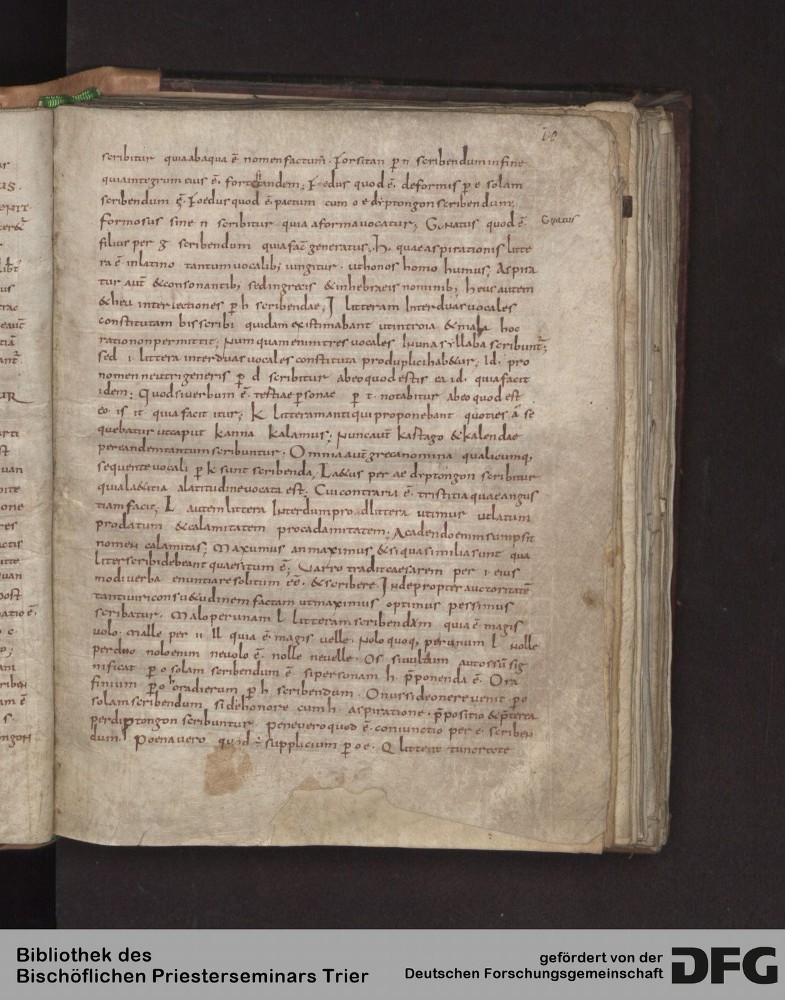 scribitur quia ab aqua ē nomen factum. Forsitan p n scribendum in fine
quia integrum eius ē. forte tandem; Fedus quod ē. deformis p e solam
scribendum ē. Foedus quod ē. pactum cum o e dyptongon scribendum;
formosus sine n scribitur quia a forma vocatur; Gnatus quod ē.
Gnatus
filius per g scribendum quia fac generatus. h. quae aspirationis litte
ra ē in latino tantum vocalib; iungitur. ut honos homo humus; Aspira
tur aut & consonantib; sed in grecis & in hebraeis nominib; heus autem
& heu interiectiones p h scribendae; I litteram Inter duas vocales
constitutam bis scribi quidam existimabant ut in troia & maia hoc
ratio non permittit; Numquam enim tres vocales In una syllaba scribuntr;
sed i littera inter duas vocales constituta pro duplici habetur; Id. pro
nomen neutri generis p d scribitur ab eo quod est is ea id. quia facit
idem; Quod si verbum ē. tertiae personae p t. notabitur ab eo quod est
eo. is it quia facit itur; K litteram antiqui proponebant quoties a se
quebatur ut caput kanna kalamus; Nunc aut kartago & kalendae
per eandem tantum scribuntur. Omnia aut greca nomina qualicumq,
sequente vocali p k sunt scribenda, Laetus per ae dyptongon scribitur
quia laetitia a latitudine vocata est; Cui contraria ē. tristitia quae angus
tiam facit; L autem littera Interdum pro d littera utimur ut latum
pro datum & calamitatem pro cadamitatem; A cadendo enim sumpsit
nomen calamitas; Maximus an maxumus & si qua similia sunt qua
litter scribi debeant quaesitum ē; Varro tradit caesarem per i eius
modi verba enuntiare solitum eē. & scribere. Inde propter auctoritatē
tanti viri consuetudinem factam ut maximus optimus pessimus
scribatur. Malo per unam l litteram scribendam quia ē magis
volo. malle per ii ll quia ē. magis velle. Nolo quoq, per unum l nolle
per duo nolo enim nevolo ē. nolle nevelle. Os si vultum aut ossum sig
nificat p o solam scribendum ē si personam h pponenda ē. Ora
finium p o ora dierum p h scribendum. Onus si de onere venit p o
solam scribendum, si de honore cum h aspiratione. ppositio & pterea
per diptongon scribuntur. Pene vero quod ē. coniunctio per e. scriben
dum. Poena vero quod ē supplicium p o e. Q littera
Bibliothek des
Bischöflichen Priesterseminars Trier
gefördert von der
Deutschen Forschungsgemeinschaft
DFG